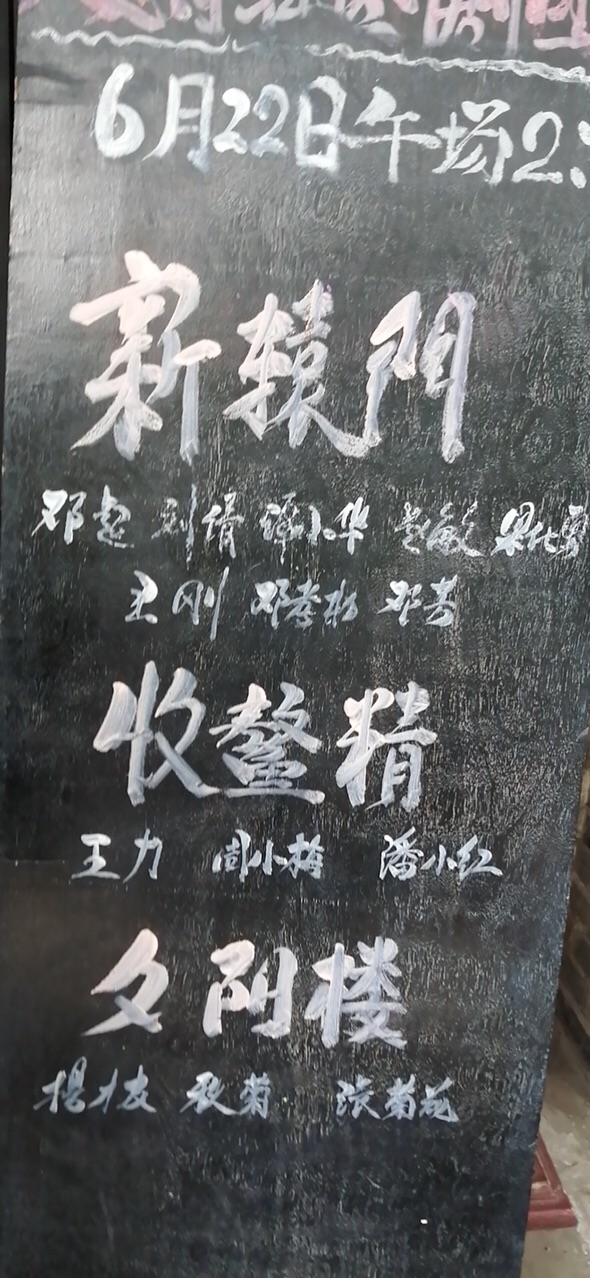 剧团
6月22日午场2:
新辕門
邓超 刘倩 谭小华 赵敏
王刚 邓孝彬 邓芳
收鳌精
王力 周小梅 潘小红
夕阳楼
楊才友 秋菊 张菊花